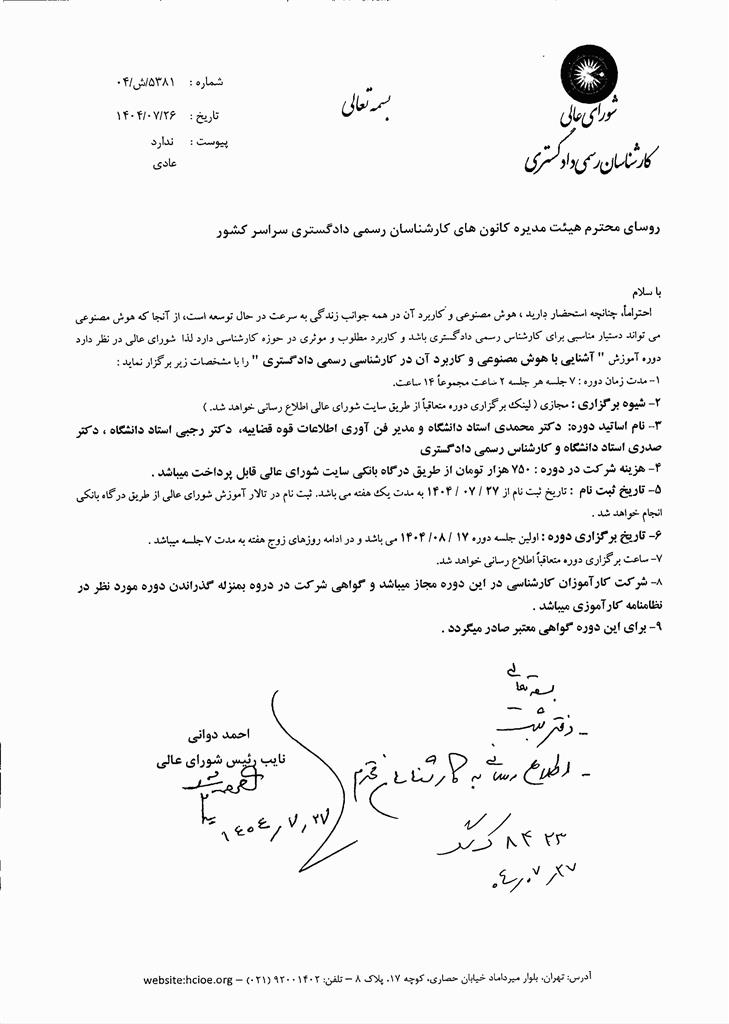 شورای عالی
کارشناسان رسمی دادگستری
بسمه تعالی
شماره : ۵۳۸۱/ش/۰۴
تاریخ : ۱۴۰۴/۰۷/۲۶
پیوست : ندارد
عادی
روسای محترم هیئت مدیره کانون های کارشناسان رسمی دادگستری سراسر کشور
با سلام
احتراماً، چنانچه استحضار دارید ، هوش مصنوعی و کاربرد آن در همه جوانب زندگی به سرعت در حال توسعه است، از آنجا که هوش مصنوعی
می تواند دستیار مناسبی برای کارشناس رسمی دادگستری باشد و کاربرد مطلوب و موثری در حوزه کارشناسی دارد لذا شورای عالی در نظر دارد
دوره آموزش " آشنایی با هوش مصنوعی و کاربرد آن در کارشناسی رسمی دادگستری " را با مشخصات زیر برگزار نماید :
۱- مدت زمان دوره : ۷ جلسه هر جلسه ۲ ساعت مجموعاً ۱۴ ساعت.
۲- شیوه برگزاری : مجازی ( لینک برگزاری دوره متعاقباً از طریق سایت شورای عالی اطلاع رسانی خواهد شد. )
۳- نام اساتید دوره: دکتر محمدی استاد دانشگاه و مدیر فن آوری اطلاعات قوه قضاییه، دکتر رجبی استاد دانشگاه ، دکتر
صدری استاد دانشگاه و کارشناس رسمی دادگستری
۴- هزینه شرکت در دوره : ۷۵۰ هزار تومان از طریق درگاه بانکی سایت شورای عالی قابل پرداخت میباشد .
۵- تاریخ ثبت نام : تاریخ ثبت نام از ۲۷ / ۰۷ / ۱۴۰۴ به مدت یک هفته می باشد. ثبت نام در تالار آموزش شورای عالی از طریق درگاه بانکی
انجام خواهد شد .
۶- تاریخ برگزاری دوره : اولین جلسه دوره ۱۷ / ۰۸/ ۱۴۰۴ می باشد و در ادامه روزهای زوج هفته به مدت ۷ جلسه میباشد .
۷- ساعت برگزاری دوره متعاقباً اطلاع رسانی خواهد شد.
۸- شرکت کارآموزان کارشناسی در این دوره مجاز میباشد و گواهی شرکت در دروه بمنزله گذراندن دوره مورد نظر در
نظامنامه کارآموزی میباشد .
۹- برای این دوره گواهی معتبر صادر میگردد .
احمد دوانی
نایب رئیس شورای عالی
بسمه تعالی
- دفتر ثبت
- اطلاع رسانی به کارشناسان محترم
۱۴۰۴/۷/۲۷
۸۴۲۳
۰۴/۰۷/۲۷
آدرس: تهران، بلوار میرداماد خیابان حصاری، کوچه ۱۷، پلاک ۸ – تلفن: ۹۲۰۰۱۴۰۲ (۰۲۱) – website:hcioe.org